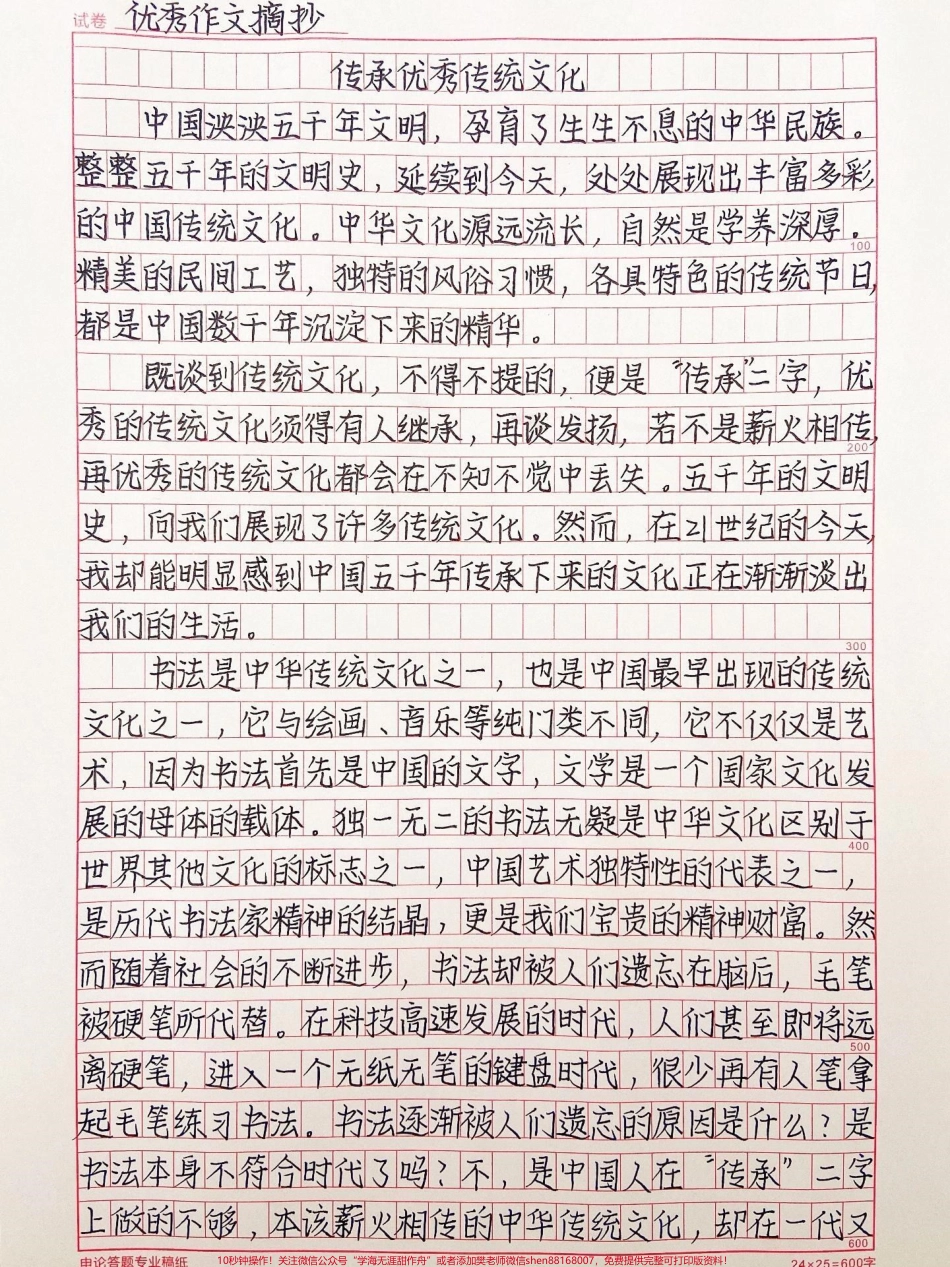 试卷 优秀作文摘抄
传承优秀传统文化
中国泱泱五千年文明，孕育了生生不息的中华民族。
整整五千年的文明史，延续到今天，处处展现出丰富多彩
的中国传统文化。中华文化源远流长，自然是学养深厚。
100
精美的民间工艺，独特的风俗习惯，各具特色的传统节日，
都是中国数千年沉淀下来的精华。
既谈到传统文化，不得不提的，便是“传承”二字，优
秀的传统文化须得有人继承，再谈发扬，若不是薪火相传，
200
再优秀的传统文化都会在不知不觉中丢失。五千年的文明
史，向我们展现了许多传统文化。然而，在21世纪的今天，
我却能明显感到中国五千年传承下来的文化正在渐渐淡出
我们的生活。
300
书法是中华传统文化之一，也是中国最早出现的传统
文化之一，它与绘画、音乐等纯门类不同，它不仅仅是艺
术，因为书法首先是中国的文字，文学是一个国家文化发
展的母体的载体。独一无二的书法无疑是中华文化区别于
400
世界其他文化的标志之一，中国艺术独特性的代表之一，
是历代书法家精神的结晶，更是我们宝贵的精神财富。然
而随着社会的不断进步，书法却被人们遗忘在脑后，毛笔
被硬笔所代替。在科技高速发展的时代，人们甚至即将远
500
离硬笔，进入一个无纸无笔的键盘时代，很少再有人笔拿
起毛笔练习书法。书法逐渐被人们遗忘的原因是什么？是
书法本身不符合时代了吗？不，是中国人在“传承”二字
上做的不够，本该薪火相传的中华传统文化，却在一代又
600
申论答题专业稿纸 10秒钟操作！关注微信公众号“学海无涯甜作舟”或者添加樊老师微信shen88168007，免费提供完整可打印版资料！ 24×25=600字